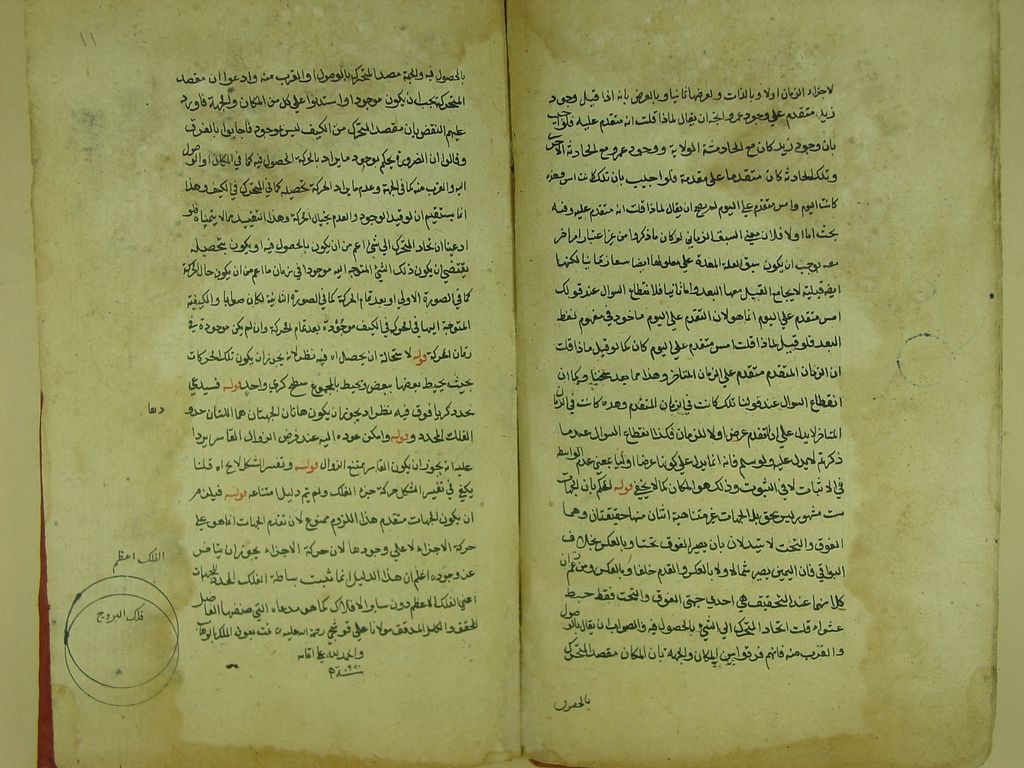 لاجزاء الزمان اولا وبالذات ولعرضها ثانيا وبالعرض بانه اذا قيل وجود
زيد متقدم على وجود عمرو اتجه ان يقال لماذا قلت انه متقدم عليه فلو اجيب
بان وجود زيد كان مع الحادثة الاولية ووجود عمرو مع الحادثة الاخرى
وتلك الحادثة كان متقدما على مقدمة فلو اجيب بان تلك كانت امس وهذه
كانت اليوم وامس متقدم على اليوم لم يصح ان يقال لماذا قلت انه متقدم عليه وفيه
بحث اما اولا فلان معنى السبق الزماني لو كان ما ذكروا من غير اعتبار امر اخر
معه يوجب ان يكون سبق العلة المعدة على معلولها ايضا سبقا زمانيا لكنها
ايضا قبلية لا يجامع القبل معها البعد واما ثانيا فلان انقطاع السؤال عند قولك
امس متقدم على اليوم انما هو لان التقدم على اليوم ماخوذ في مفهوم لفظ
البعد فلو قيل لماذا قلت امس متقدم على اليوم كان كما لو قيل لماذا قلت
ان الزمان المتقدم متقدم على الزمان المتاخر وهذا مما يعد سخيفا وكما ان
انقطاع السؤال عند قولنا تلك كانت في الزمان المتقدم وهذه كانت في الزمان
المتاخر لا يدل على ان التقدم عرض اولا للزمان فكذا انقطاع السؤال عند ما
ذكرتم لا يدل عليه ولو سلم فانه انما يدل على كونه عرضا اوليا بمعنى عدم الواسطة
في الاثبات لا في الثبوت وذلك هو المكان كما لا يخفى قوله الحكم بان الجهات
ست مشهور ليس بحق بل الجهات غير متناهية اثنان منها حقيقتان وهما
الفوق والتحت لا يتبدلان بان يصير الفوق تحتا وبالعكس بخلاف
البواقي فان اليمين يصير شمالا ولا بالعكس والقدم خلفا وبالعكس ومن زعم ان
كلا منهما عند التحقيق هي احدى جهتي الفوق والتحت فقط خبط
عشواء قلت اتحاد المتحرك الى الشيء بالحصول فيه والصواب ان يقال بالوصول
والقرب منه فانهم فرقوا بين المكان والجهة بان المكان مقصد المتحرك
بالحصول
١١
بالحصول فيه والجهة مقصد المتحرك بالوصول او القرب منه وادعوا ان مقصد
المتحرك يجب ان يكون موجودا واستدلوا على كل من المكان والجهة فاورد
عليهم النقض بان مقصد المتحرك من الكيف ليس بموجود فاجابوا بالفرق
وقالوا ان الضرورة يحكم بوجود ما يراد بالحركة الحصول فيه كما في المكان او الوصول
اليه والقرب منه كما في الجهة وعدم ما يراد الحركة تحصيله كما في المتحرك في الكيف وهذا
انما يستقيم ان لو قيد الوجود والعدم بحال الحركة وهذا التقييد مما لا يتمناه فلو
ادعينا ان اتحاد المتحرك الى شيء اعم من ان يكون بالحصول فيه او يكون بتحصيله
يقتضي ان يكون ذلك الشيء المتوجه اليه موجودا في زمان ما اعم من ان يكون حال الحركة
كما في الصورة الاولى او بعد تمام الحركة كما في الصورة الثانية لكان صوابا والكيفية
المتوجه اليها في الحركة في الكيف موجودة بعد تمام الحركة وان لم يكن موجودة في
زمان الحركة قوله لاستحالة ان يحصل اه فيه نظر لانه يجوز ان يكون تلك الحركات
بحيث يحيط بعضها ببعض ويحيط بالمجموع سطح كري واحد قوله فسيدي
تحدد كريا فوق فيه نظر اذ يجوز ان يكون هاتان الجهتان هما اللتان حدد
دها
الفلك المحدد وقوله وامكن عوده اليه عند فرض الزوال القاسر يرد
عليه انه يجوز ان يكون القاسر ممتنع الزوال قوله وتغير الشكل لا يجاه قلنا
يكفي في تغيير الشكل حركة جزء الفلك ولم يتم دليل امتناعه قوله فيلزم
ان يكون الجهات متقدم هذا اللزوم ممنوع لان تقدم الجهات انما هو على
حركة الاجزاء لا على وجودها لان حركة الاجزاء يجوز ان يتاخر
عن وجوده اعلم ان هذا الدليل انما يثبت بساطة الفلك المحدد للجهات
اعني الفلك الاعظم دون ساير الافلاك كما هو مدعاه التي صنفها الفاضل
المحقق والكامل المدقق مولانا علي قوشجي رحمة الله عليه تمت بعون الملك الوهاب
والحمد لله على اتمامه
سنة ٩٨٠
الفلك اعظم
فلك البروج